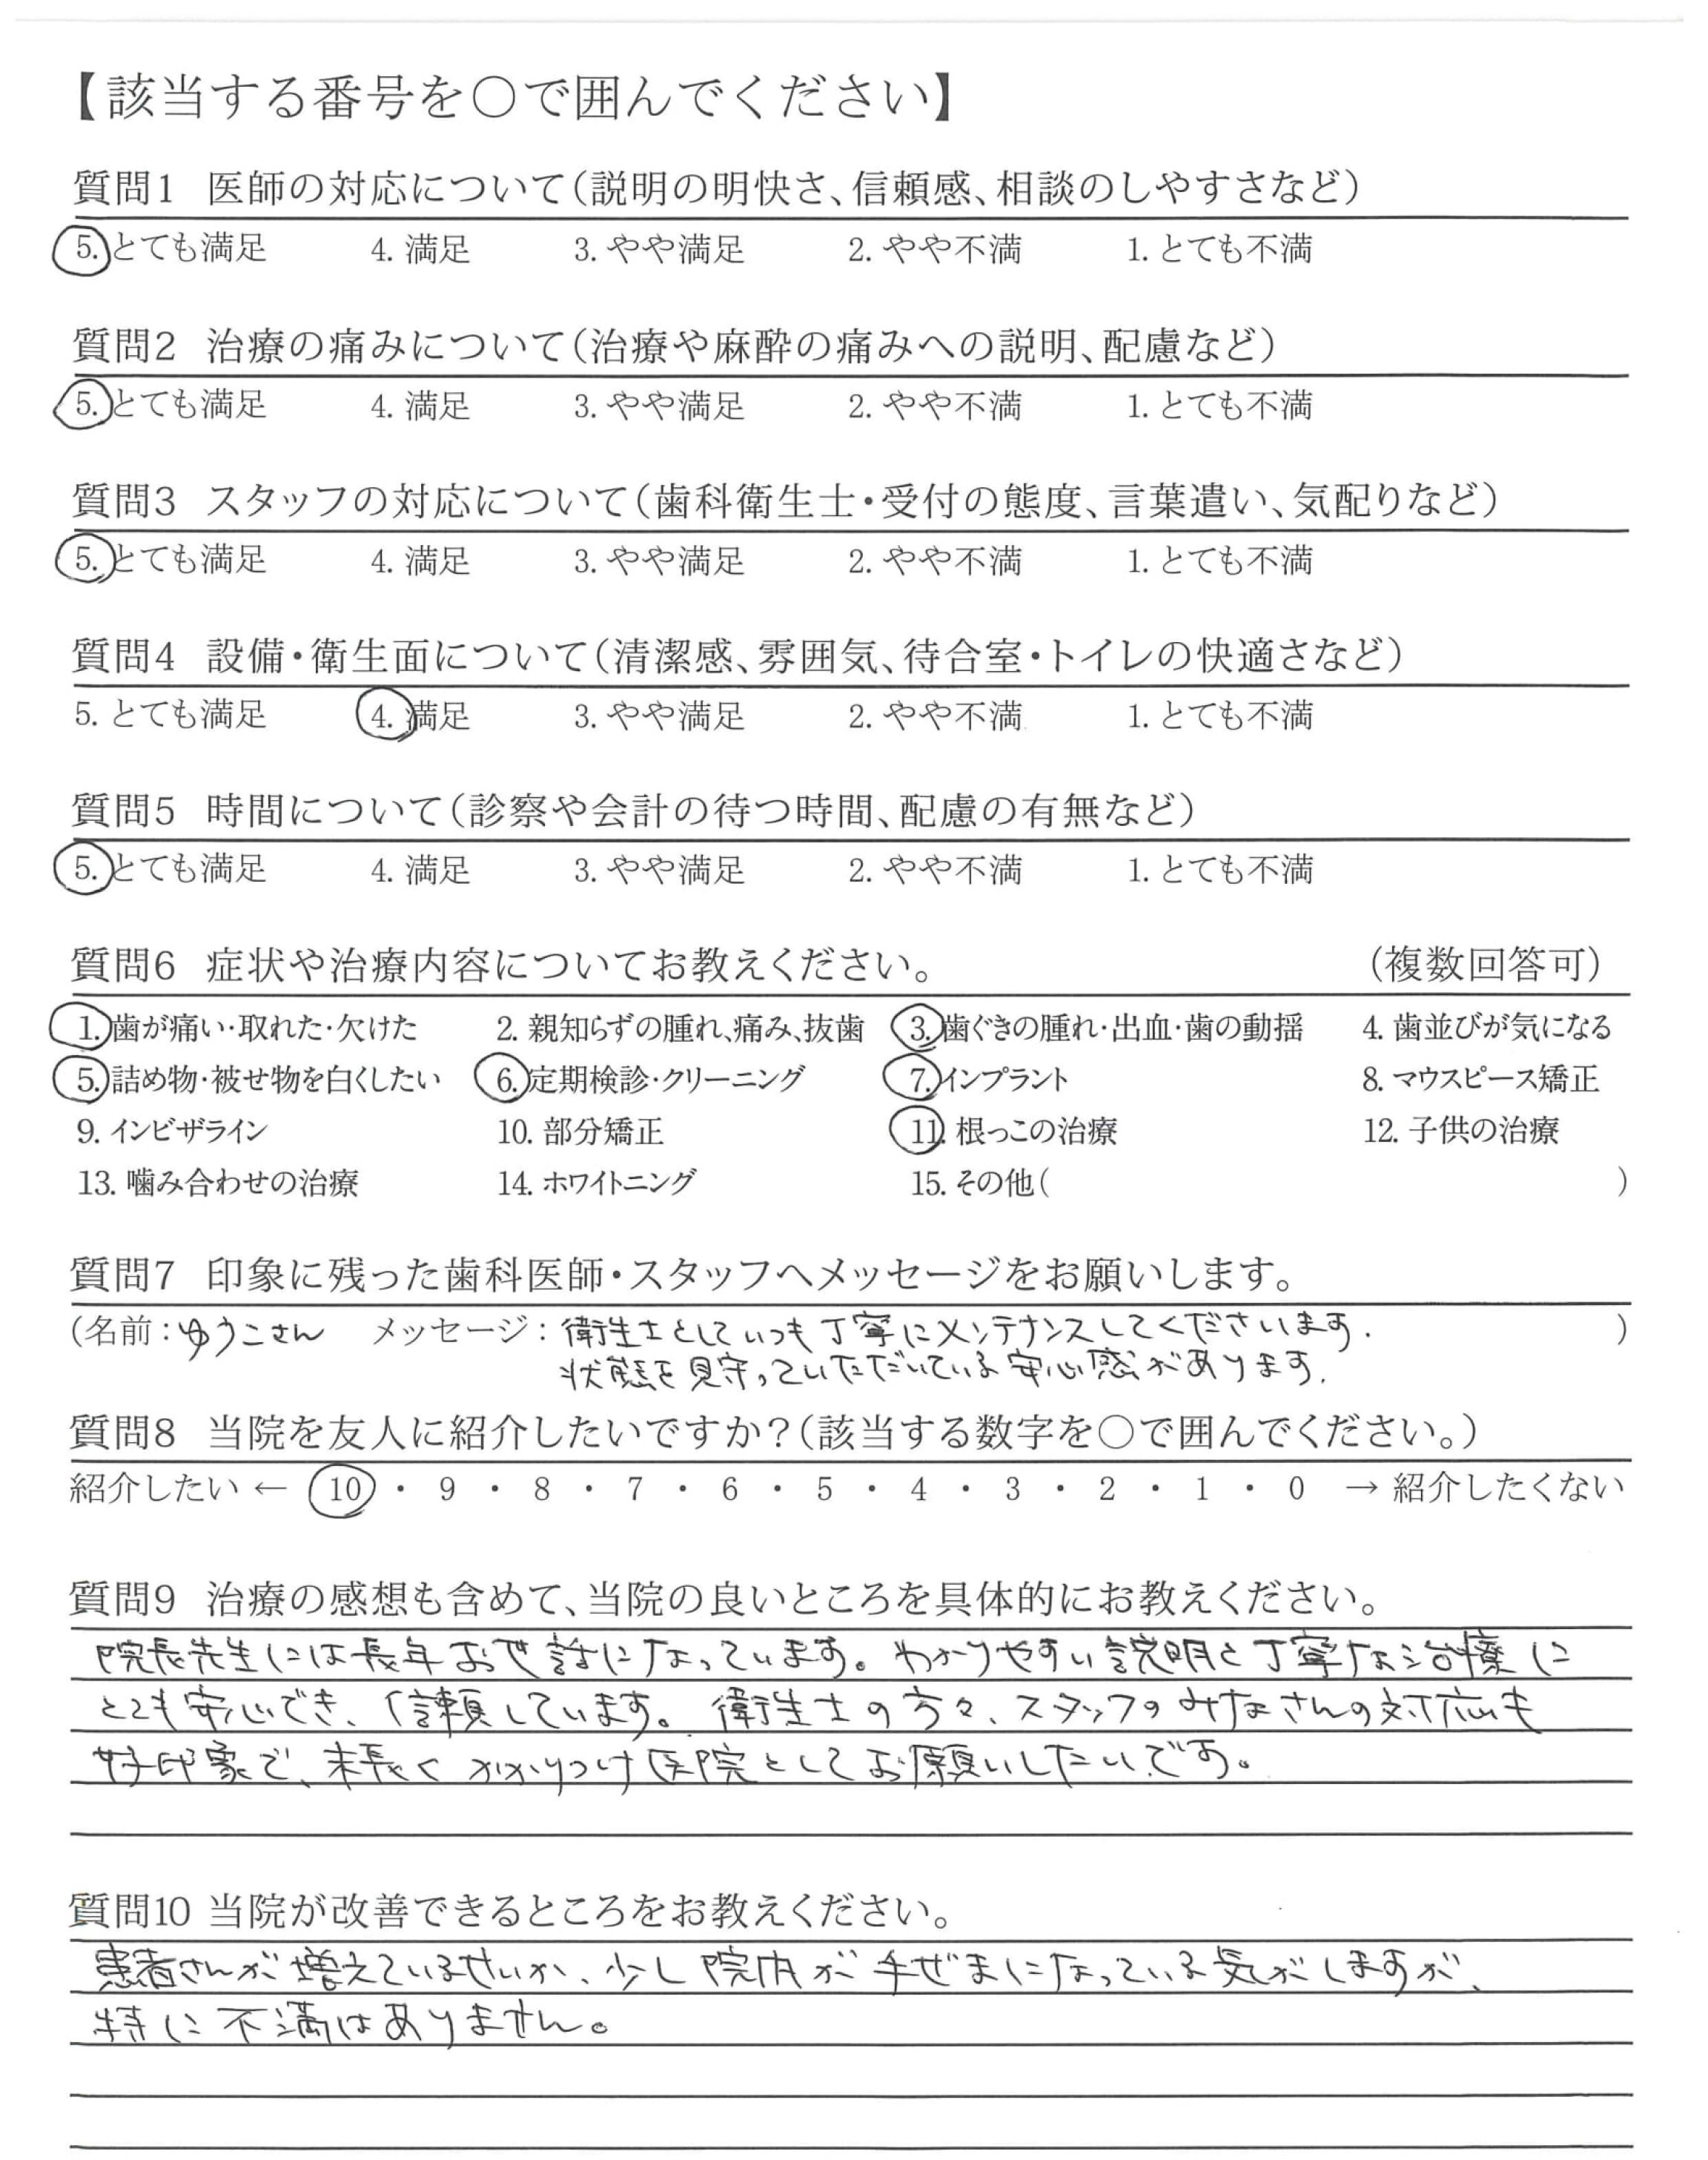 【該当する番号を○で囲んでください】
質問1 医師の対応について(説明の明快さ、信頼感、相談のしやすさなど)
5. とても満足 4. 満足 3. やや満足 2. やや不満 1. とても不満
質問2 治療の痛みについて(治療や麻酔の痛みへの説明、配慮など)
5. とても満足 4. 満足 3. やや満足 2. やや不満 1. とても不満
質問3 スタッフの対応について(歯科衛生士・受付の態度、言葉遣い、気配りなど)
5. とても満足 4. 満足 3. やや満足 2. やや不満 1. とても不満
質問4 設備・衛生面について(清潔感、雰囲気、待合室・トイレの快適さなど)
5. とても満足 4. 満足 3. やや満足 2. やや不満 1. とても不満
質問5 時間について(診察や会計の待つ時間、配慮の有無など)
5. とても満足 4. 満足 3. やや満足 2. やや不満 1. とても不満
質問6 症状や治療内容についてお教えください。 (複数回答可)
1. 歯が痛い・取れた・欠けた 2. 親知らずの腫れ、痛み、抜歯 3. 歯ぐきの腫れ・出血・歯の動揺 4. 歯並びが気になる
5. 詰め物・被せ物を白くしたい 6. 定期検診・クリーニング 7. インプラント 8. マウスピース矯正
9. インビザライン 10. 部分矯正 11. 根っこの治療 12. 子供の治療
13. 噛み合わせの治療 14. ホワイトニング 15. その他( )
質問7 印象に残った歯科医師・スタッフへメッセージをお願いします。
(名前:ゆうこさん メッセージ:衛生士としていつも丁寧にメンテナンスしてくださいます. )
状態を見守っていただいている安心感があります.
質問8 当院を友人に紹介したいですか?(該当する数字を○で囲んでください。)
紹介したい ← 10 ・ 9 ・ 8 ・ 7 ・ 6 ・ 5 ・ 4 ・ 3 ・ 2 ・ 1 ・ 0 → 紹介したくない
質問9 治療の感想も含めて、当院の良いところを具体的にお教えください。
院長先生には長年お世話になっています。わかりやすい説明と丁寧な治療に
とても安心でき、信頼しています。衛生士の方々、スタッフのみなさんの対応も
好印象で、末長くかかりつけ医院としてお願いしたいです。
質問10 当院が改善できるところをお教えください。
患者さんが増えているせいか、少し院内が手ぜまになっている気がしますが、
特に不満はありません。